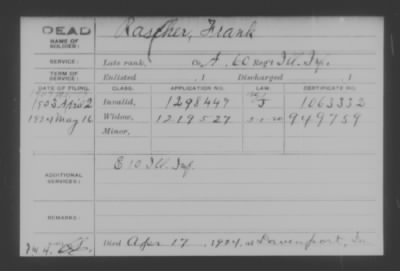 DEAD
NAME OF SOLDIER: Rascher, Frank
SERVICE: Late rank, Co. A, 60 Reg't Ill. Inf.
TERM OF SERVICE: Enlisted , 1 Discharged , 1
DATE OF FILING. CLASS. APPLICATION NO. LAW. CERTIFICATE NO.
1903 Apr 2 Invalid, 1298447 J 1063332
1924 May 16 Widow, 1219527 949759
Minor,
ADDITIONAL SERVICES: E 10 Ill. Inf.
REMARKS:
Died Apr 17, 1924, at Davenport, Ia